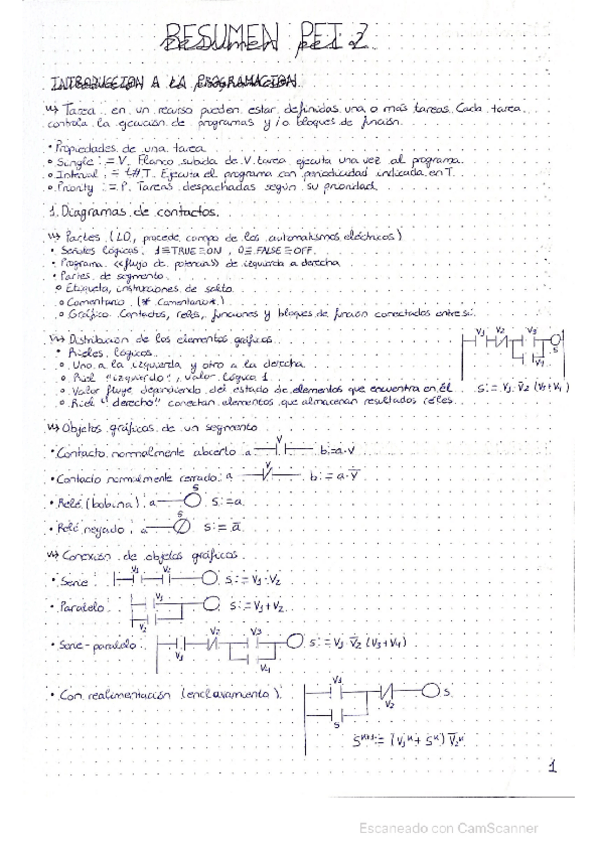 RESUMEN PEI 2
INTRODUCCION A LA PROGRAMACION
Tarea en un recurso pueden estar definidas una o más tareas. Cada tarea
controla la ejecución de programas y/o bloques de función.
• Propiedades de una tarea
o Single := V. Flanco subida de V. tarea ejecuta una vez al programa.
o Interval := t#T. Ejecuta el programa con periodicidad indicada en T.
o Priority := P. Tareas despachadas según su prioridad.
1. Diagramas de contactos.
Partes (LD, procede campo de los automatismos eléctricos)
• Señales lógicas: 1≡TRUE≡ON, 0≡FALSE≡OFF.
• Programa. <<flujo de potencia>> de izquierda a derecha
• Partes de segmento.
o Etiqueta, instrucciones de salto.
o Comentario (* Comentario *)
o Gráfico. Contactos, relés, funciones y bloques de función conectados entre sí.
Distribución de los elementos gráficos.
• Rieles lógicos.
o Uno a la izquierda y otro a la derecha.
o Riel "izquierdo", valor lógico 1
o Valor fluye dependiendo del estado de elementos que encuentra en él
o Riel "derecho" conectan elementos que almacenan resultados
V1 V2 V3
S
V4
S:= V1·V̅2 (V3+V4)
Objetos gráficos de un segmento
• Contacto normalmente abierto a V b:=a·V
• Contacto normalmente cerrado: a V b:= a·V̅
• Relé (bobina): a S S:=a
• Relé negado: a S S:= a̅
Conexión de objetos gráficos
• Serie V1 V2 S:=V1·V2
• Paralelo V1 V2 S:=V1+V2
• Serie-paralelo: V1 V2 V3 V4 S:=V1·V̅2 (V3+V4)
• Con realimentación (enclavamiento) V1 V2 S S
Sᴷ⁺¹:= (V1ᴷ + Sᴷ) V̅2ᴷ
1
Escaneado con CamScanner